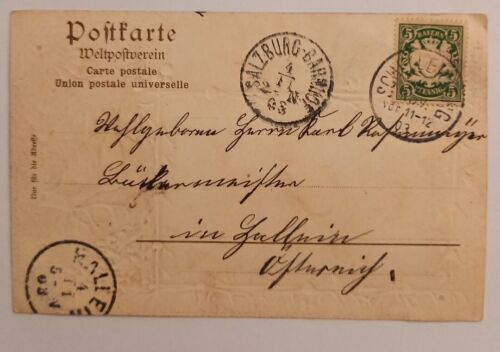 Postkarte
Weltpostverein
Carte postale
Union postale universelle
SALZBURG-BAHNHOF
4
5 BAYERN 5
5 PFENNIG 5
VOR. 11-12
03
Nur für die Adresse
Wohlgeboren Herrn Karl
Bäckermeister
in Hallein
Österreich
HALLEIN
03